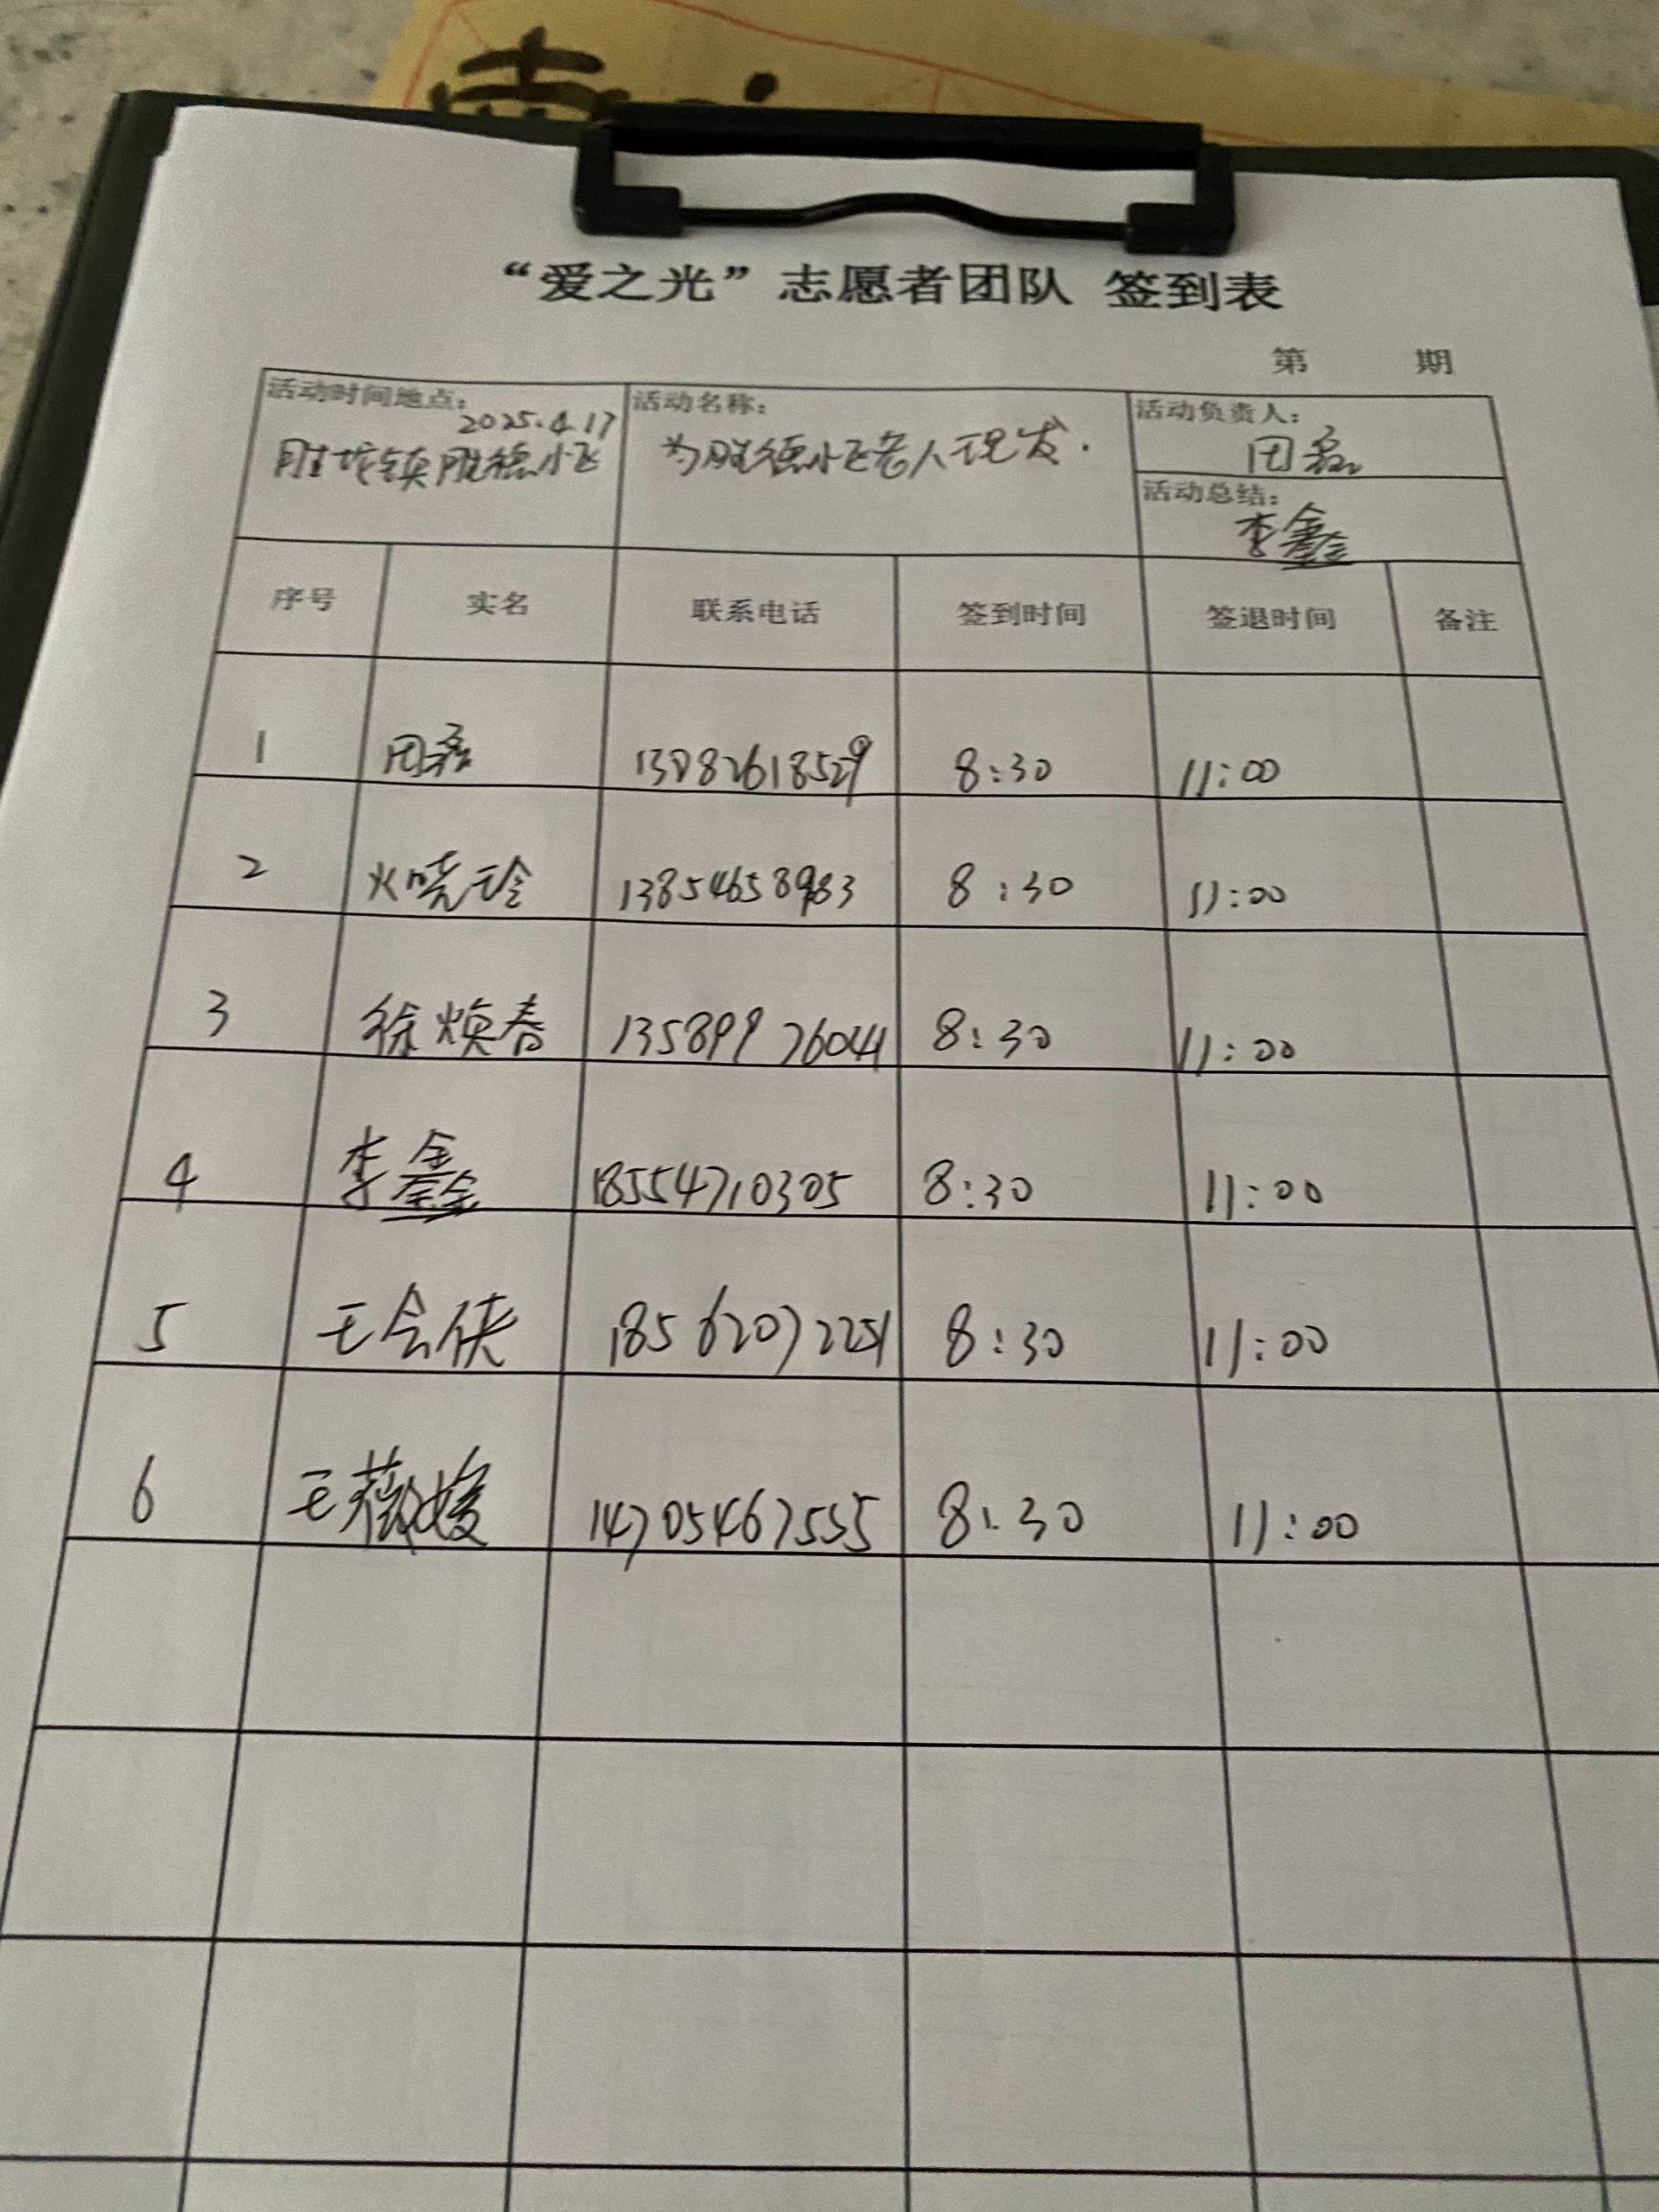 “爱之光”志愿者团队 签到表
第 期
活动时间地点: 2025.4.17
胜坨镇胜德小区
活动名称:
为胜德小区老人理发.
活动负责人:
田磊
活动总结:
李鑫
序号 实名 联系电话 签到时间 签退时间 备注
1 田磊 13082618529 8:30 11:00
2 火晓玲 13854658983 8:30 11:00
3 徐焕春 13589976041 8:30 11:00
4 李鑫 18554710305 8:30 11:00
5 王会侠 18562072251 8:30 11:00
6 王薇媛 14705467555 8:30 11:00